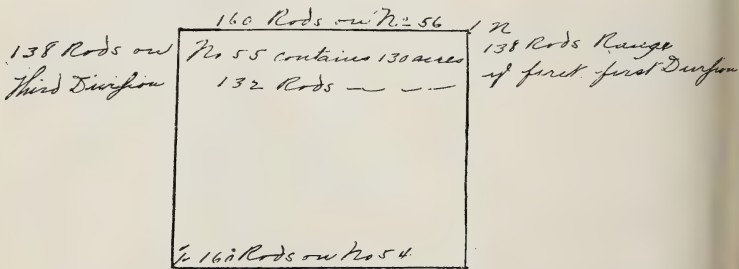 160 Rods on No 56
1 N
138 Rods on
Third Division
No 55 contains 130 acres
132 Rods — — —
138 Rods Range
of first first Division
160 Rods on No 54.